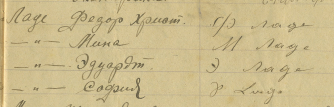 Ладе Федор Христ. Ф Ладе
—"— Мина М Ладе
—"— Эдуардт. Э Ладе
—"— София Lade